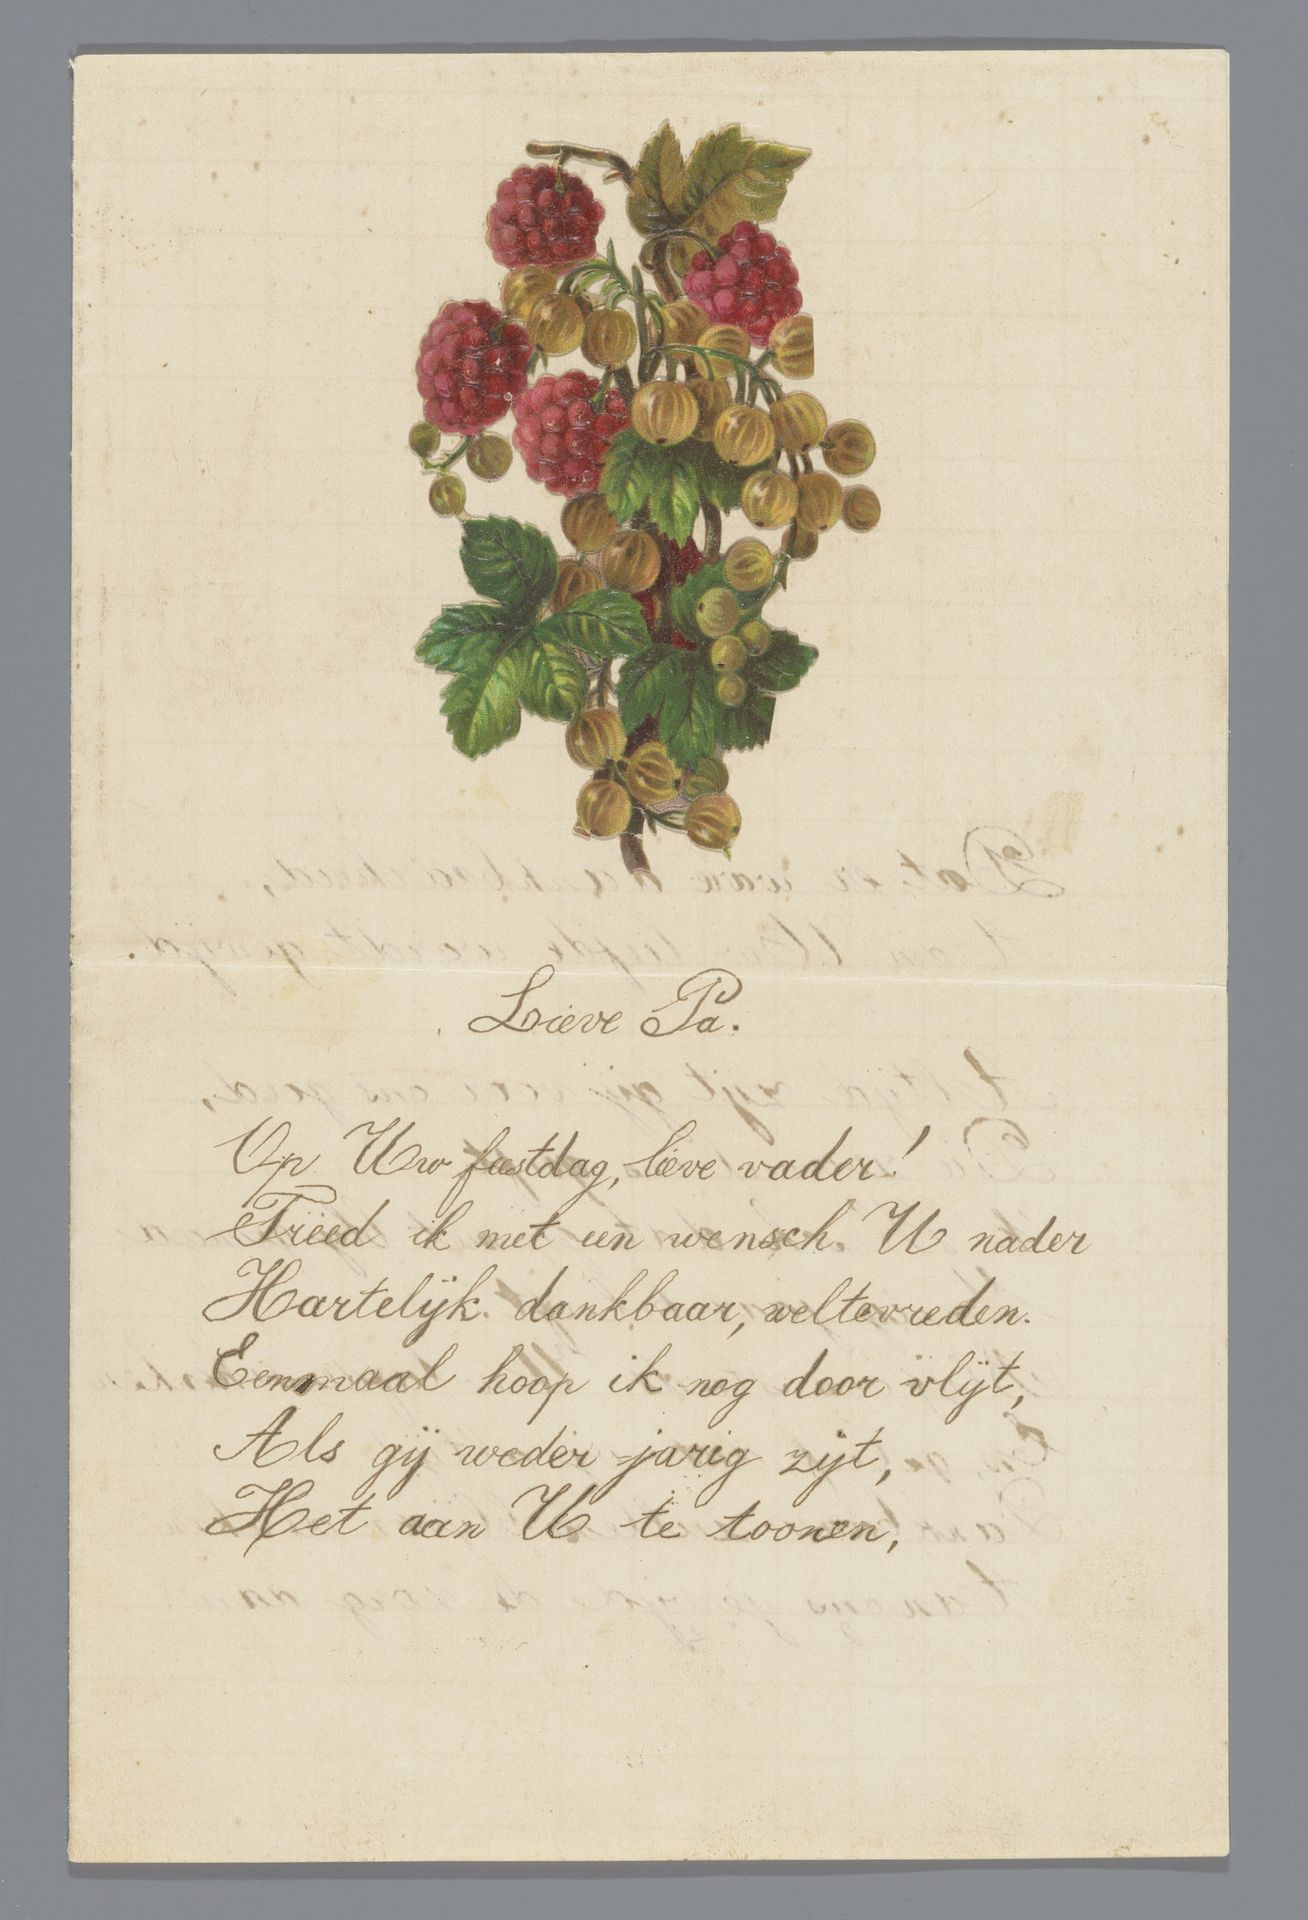 Lieve Pa.
Op Uw feestdag, lieve vader!
Treed ik met een wensch U nader
Hartelijk dankbaar, weltevreden.
Eenmaal hoop ik nog door vlijt,
Als gij weder jarig zijt,
Het aan U te toonen,